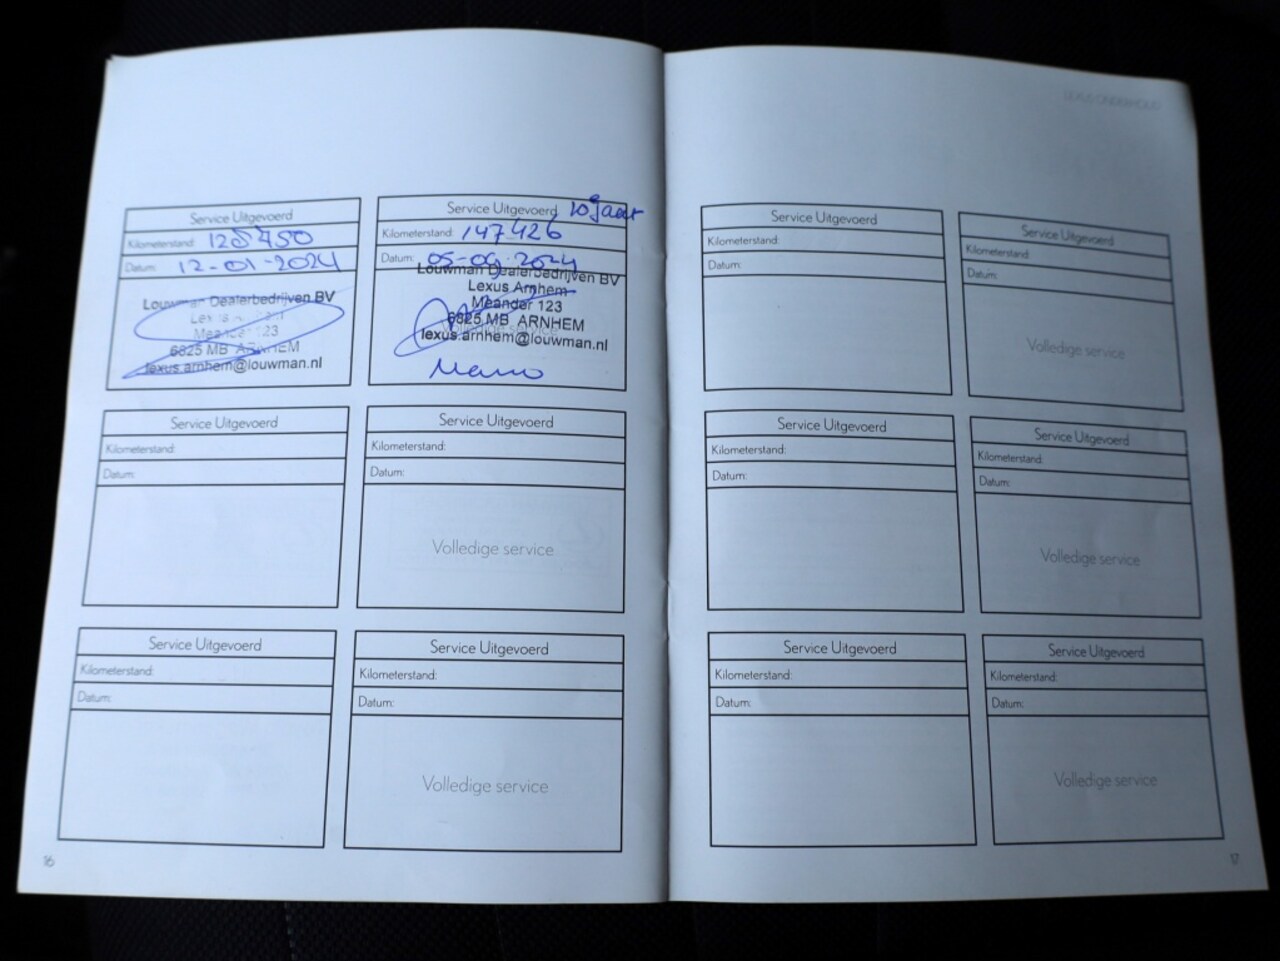 LEXUS ONDERHOUD
Service Uitgevoerd
Kilometerstand: 125450
Datum: 12-01-2024
Louwman Dealerbedrijven BV
Lexus
Meander 123
6825 MB ARNHEM
lexus.arnhem@louwman.nl
Service Uitgevoerd 10 Jaar
Kilometerstand: 147426
Datum: 05-09-2024
Louwman Dealerbedrijven BV
Lexus Arnhem
Meander 123
6825 MB ARNHEM
Volledige service
lexus.arnhem@louwman.nl
Service Uitgevoerd
Kilometerstand:
Datum:
Service Uitgevoerd
Kilometerstand:
Datum:
Volledige service
Service Uitgevoerd
Kilometerstand:
Datum:
Service Uitgevoerd
Kilometerstand:
Datum:
Volledige service
16
Service Uitgevoerd
Kilometerstand:
Datum:
Service Uitgevoerd
Kilometerstand:
Datum:
Volledige service
Service Uitgevoerd
Kilometerstand:
Datum:
Service Uitgevoerd
Kilometerstand:
Datum:
Volledige service
Service Uitgevoerd
Kilometerstand:
Datum:
Service Uitgevoerd
Kilometerstand:
Datum:
Volledige service
17